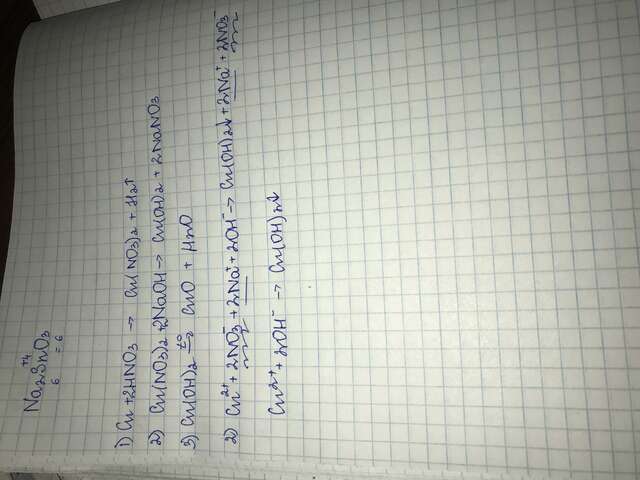 +4
Na₂SnO₃
6 = 6
1) Cu + 2HNO₃ → Cu(NO₃)₂ + H₂↑
2) Cu(NO₃)₂ + 2NaOH → Cu(OH)₂ + 2NaNO₃
3) Cu(OH)₂ t°→ CuO + H₂O
2) Cu²⁺ + 2NO₃⁻ + 2Na⁺ + 2OH⁻ → Cu(OH)₂↓ + 2Na⁺ + 2NO₃⁻
Cu²⁺ + 2OH⁻ → Cu(OH)₂↓